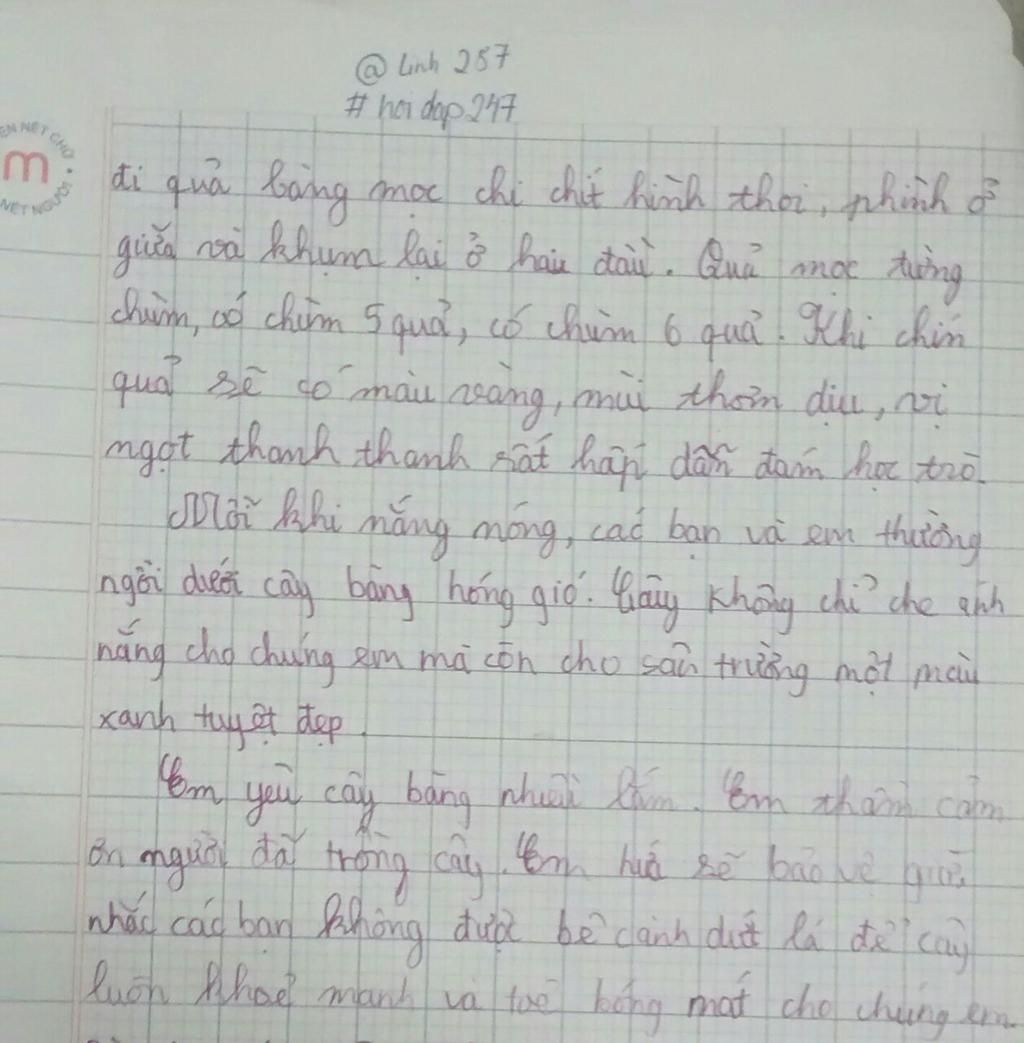 @ Linh 257
# hoidap247
EN NÉT CHỮ
m
NÉT NGƯỜI
đi quả bàng mọc chi chít hình thoi, phình ở
giữa và khụm lại ở hai đầu. Quả mọc từng
chùm, có chùm 5 quả, có chùm 6 quả. Khi chín
quả sẽ có màu vàng, mùi thơm dịu, vị
ngọt thanh thanh rất hấp dẫn đám học trò.
Mỗi khi nắng nóng, các bạn và em thường
ngồi dưới cây bàng hóng gió. Cây không chỉ che ánh
nắng cho chúng em mà còn cho sân trường một màu
xanh tuyệt đẹp.
Em yêu cây bàng nhiều lắm. Em thành cảm
ơn người đã trồng cây. Em hứa sẽ bảo vệ
nhắc các bạn không được bẻ cành dứt lá để cây
luôn khoẻ mạnh và toả bóng mát cho chúng em